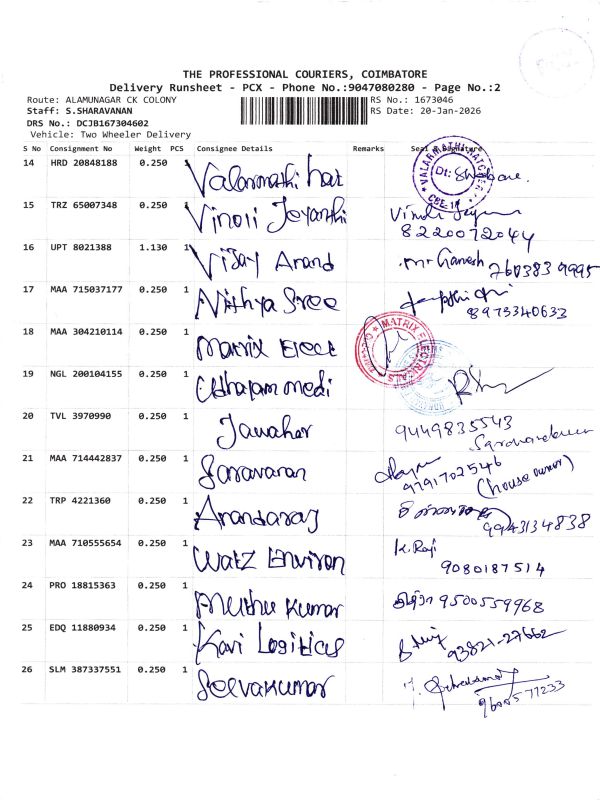 THE PROFESSIONAL COURIERS, COIMBATORE
Delivery Runsheet - PCX - Phone No.:9047080280 - Page No.:2
Route: ALAMUNAGAR CK COLONY RS No.: 1673046
Staff: S.SHARAVANAN RS Date: 20-Jan-2026
DRS No.: DCJB167304602
Vehicle: Two Wheeler Delivery
S No Consignment No Weight PCS Consignee Details Remarks Seal & Signature
14 HRD 20848188 0.250 1 Valarmathi hat
VALARMATHI HATCHERI Dt: CBE-14
15 TRZ 65007348 0.250 1 Vinoli Jeyanthi
8220072044
16 UPT 8021388 1.130 1 Vijay Anand Mr Ganesh 7603839995
17 MAA 715037177 0.250 1 Nithya Sree
8973340633
18 MAA 304210114 0.250 1 Matrix Elect
MATRIX ELECTRICALS
19 NGL 200104155 0.250 1 Uthayam medi
20 TVL 3970990 0.250 1 Jawaher 9449835543
21 MAA 714442837 0.250 1 Saravanan
9791702546
(house owner)
22 TRP 4221360 0.250 1 Anandaraj
9943134838
23 MAA 710555654 0.250 1 Watz Environ K. Raji
9080187514
24 PRO 18815363 0.250 1 Muthu Kumar 9500559968
25 EDQ 11880934 0.250 1 Kavi Logiticus
93821-27662
26 SLM 387337551 0.250 1 Selvakumar
9600577233